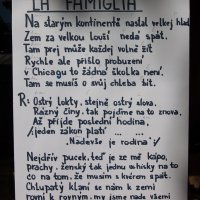 LA FAMIGLIA
Na starým kontinentě nastal velkej hlad
Zem za velkou louží nedá spát.
Tam prej může každej volně žít
Rychle ale přišlo probuzení
v Chicagu to žádná školka není.
Tam se musíš o svůj chleba bít.
R: Ostrý lokty, stejně ostrý slova.
Rázný činy, tak pojďme na to znova.
Až přijde poslední hodina,
jeden zákon platí ... ....
"Nadevše je rodina"!
Nejdřív pucek, teď je ze mě kápo,
prachy, ženský tak jednu složku na to
co na tom, že musím s kvérem spát.
Chlupatý klaní se nám k zemi
rovní k rovným, my jsme nade všemi